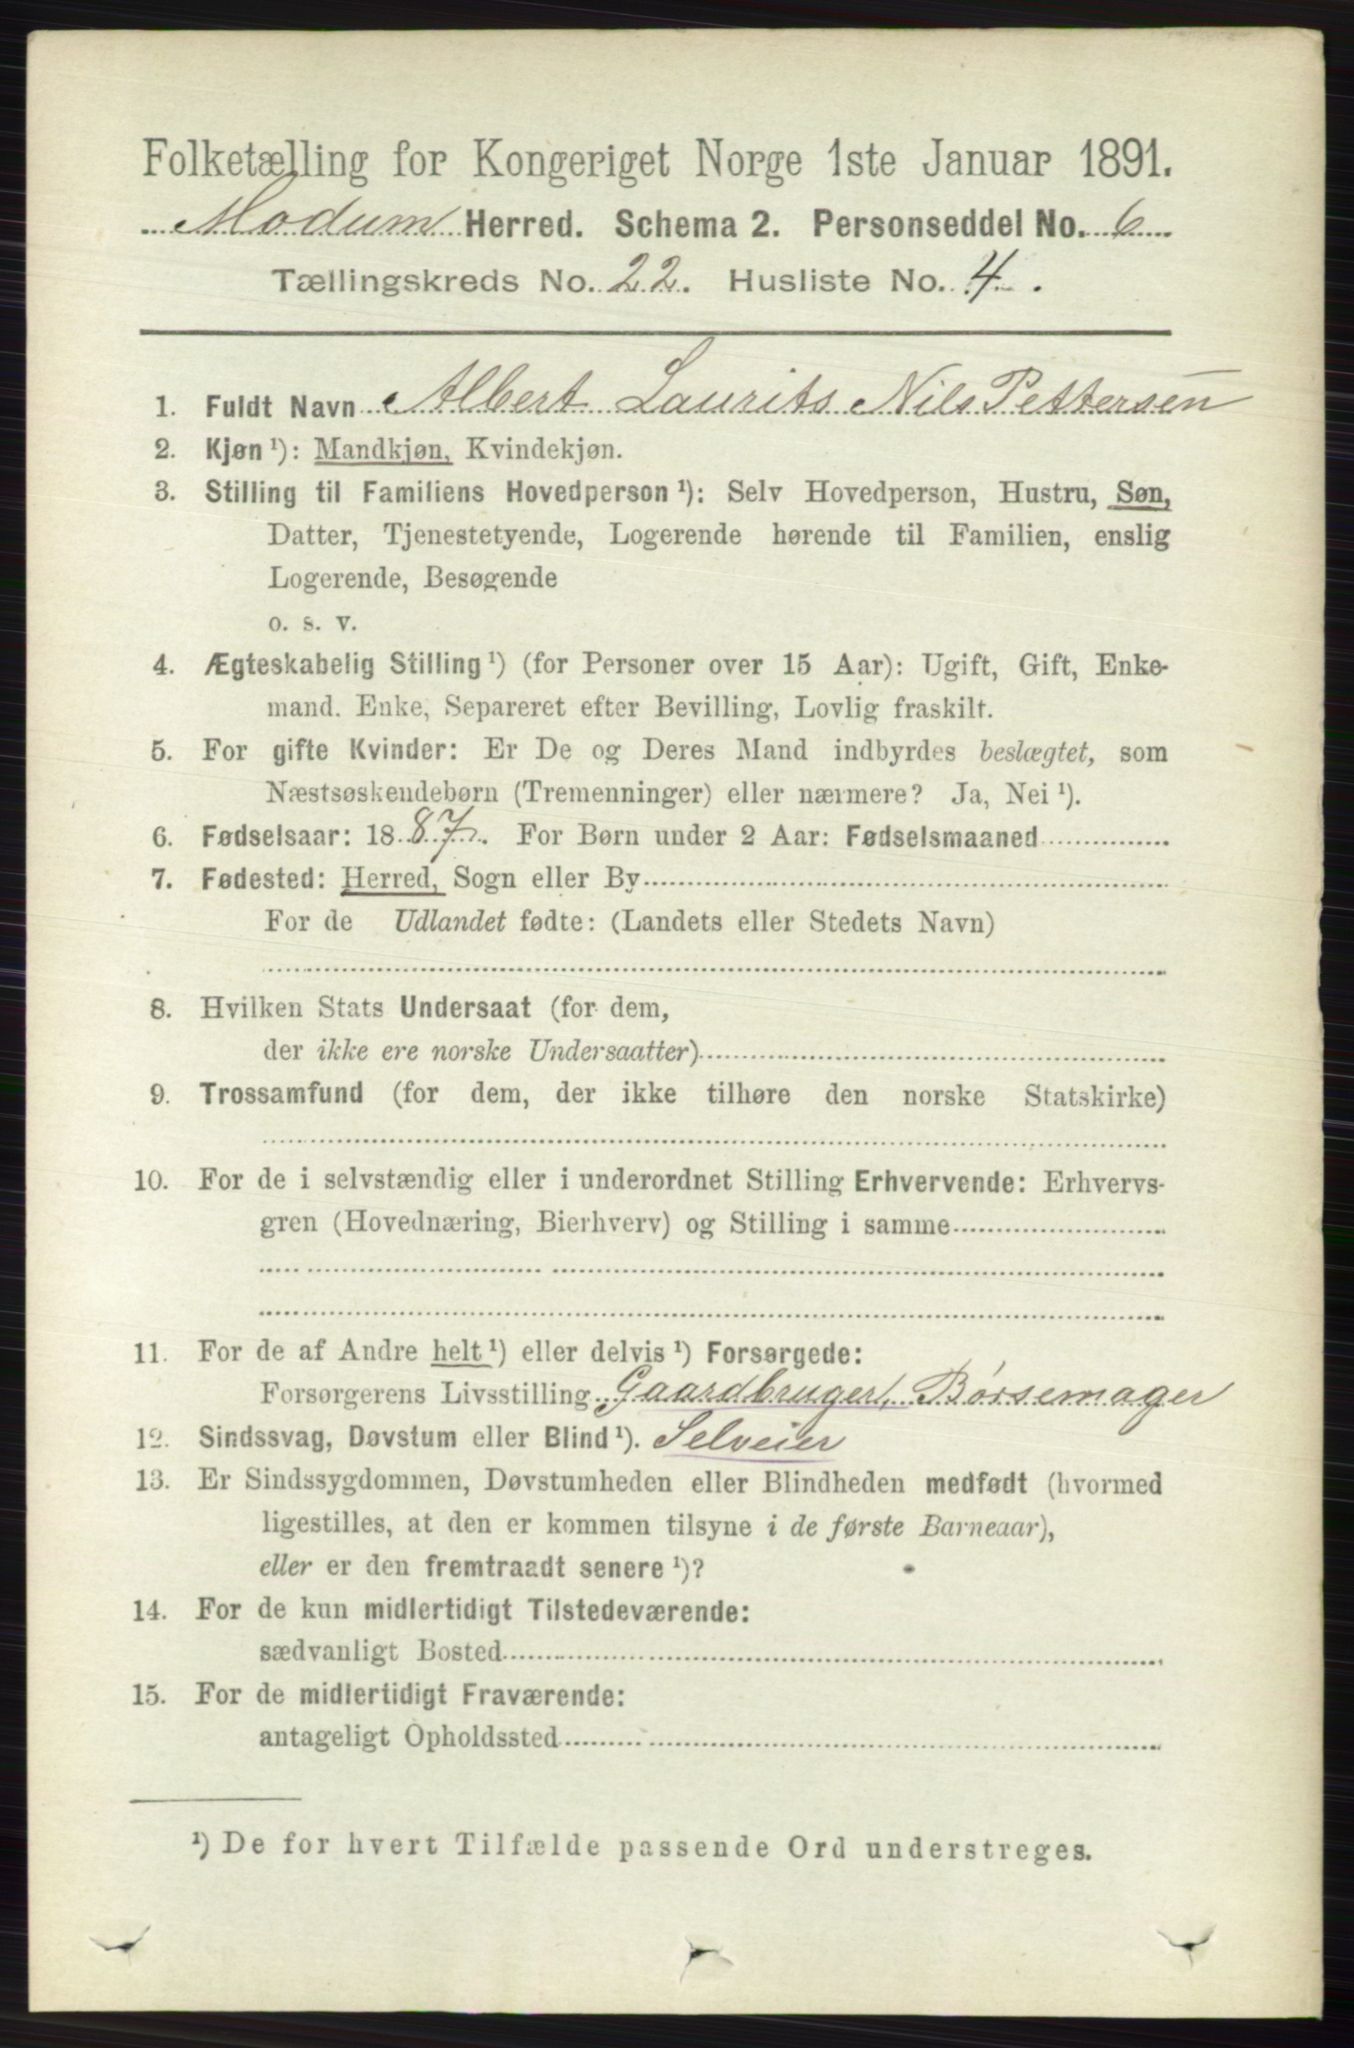 Folketælling for Kongeriget Norge 1ste Januar 1891.
Modum Herred. Schema 2. Personseddel No. 6
Tællingskreds No. 22. Husliste No. 4.
1. Fuldt Navn Albert Laurits Nils Pettersen
2. Kjøn ¹): Mandkjøn, Kvindekjøn.
3. Stilling til Familiens Hovedperson ¹): Selv Hovedperson, Hustru, Søn,
Datter, Tjenestetyende, Logerende hørende til Familien, enslig
Logerende, Besøgende
o. s. v.
4. Ægteskabelig Stilling ¹) (for Personer over 15 Aar): Ugift, Gift, Enke-
mand. Enke, Separeret efter Bevilling, Lovlig fraskilt.
5. For gifte Kvinder: Er De og Deres Mand indbyrdes beslægtet, som
Næstsøskendebørn (Tremenninger) eller nærmere? Ja, Nei ¹).
6. Fødselsaar: 1887. For Børn under 2 Aar: Fødselsmaaned
7. Fødested: Herred, Sogn eller By
For de Udlandet fødte: (Landets eller Stedets Navn)
8. Hvilken Stats Undersaat (for dem,
der ikke ere norske Undersaatter)
9. Trossamfund (for dem, der ikke tilhøre den norske Statskirke)
10. For de i selvstændig eller i underordnet Stilling Erhvervende: Erhvervs-
gren (Hovednæring, Bierhverv) og Stilling i samme
11. For de af Andre helt ¹) eller delvis ¹) Forsørgede:
Forsørgerens Livsstilling Gaardbruger, Børsemager
12. Sindssvag, Døvstum eller Blind ¹). Selveier
13. Er Sindssygdommen, Døvstumheden eller Blindheden medfødt (hvormed
ligestilles, at den er kommen tilsyne i de første Barneaar),
eller er den fremtraadt senere ¹)?
14. For de kun midlertidigt Tilstedeværende:
sædvanligt Bosted
15. For de midlertidigt Fraværende:
antageligt Opholdssted
¹) De for hvert Tilfælde passende Ord understreges.